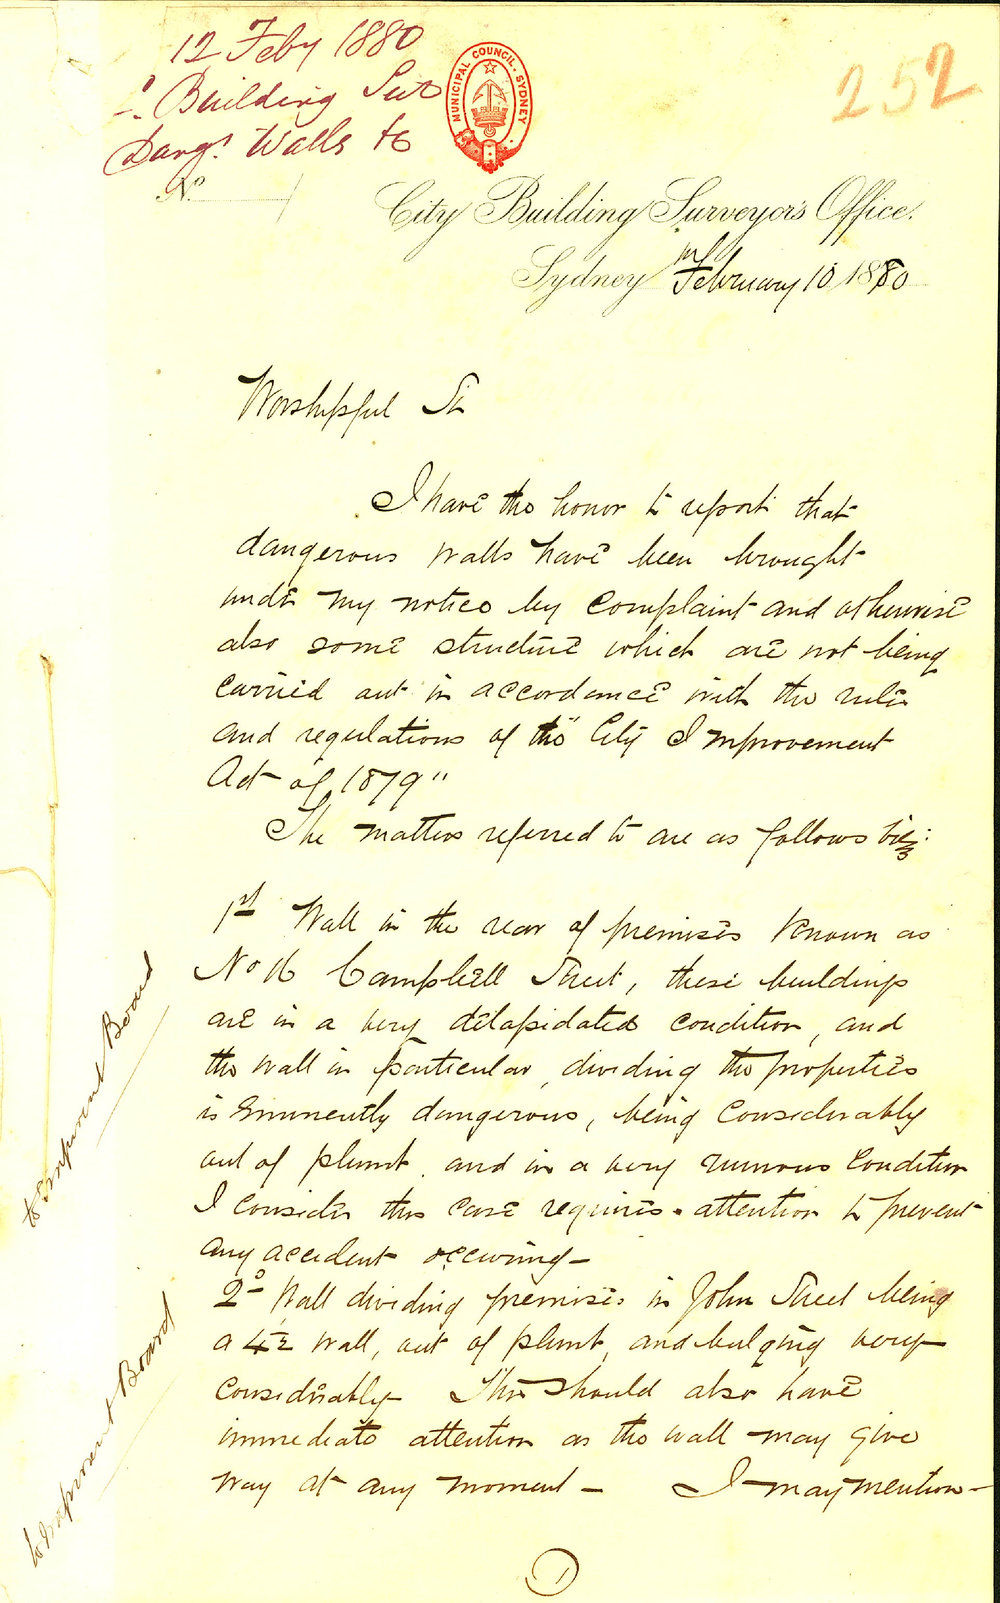 12 Feby 1880
Building Sur
Dangs Walls &c
MUNICIPAL COUNCIL. SYDNEY
252
No
City Building Surveyor's Office.
Sydney February 10 1880
Worshipful Sir
I have the honor to report that
dangerous walls have been brought
under my notice by complaint and otherwise
also some structure which are not being
carried out in accordance with the rules
and regulations of the "City Improvement
Act of 1879"
The matters referred to are as follows viz:
1st Wall in the rear of premises known as
No 16 Campbell Street, these buildings
are in a very delapidated condition, and
the wall in particular, dividing the properties
is Imminently dangerous, being Considerably
out of plumb, and in a very ruinous Condition
I consider this case requires attention to prevent
any accident occurring—
2d Wall dividing premises in John Street being
a 4½ wall, out of plumb, and bulging very
Considerably— This should also have
immediate attention as the wall may give
way at any moment— I may mention—
to Improvement Board
to Improvement Board
1